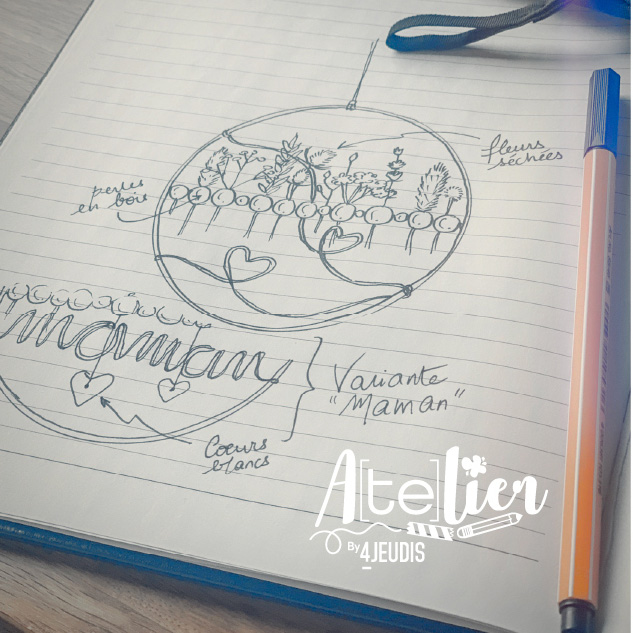 fleurs
séchées
perles
en bois
maman
Variante
"Maman"
Coeurs
blancs
A[te]lier
By 4JEUDIS